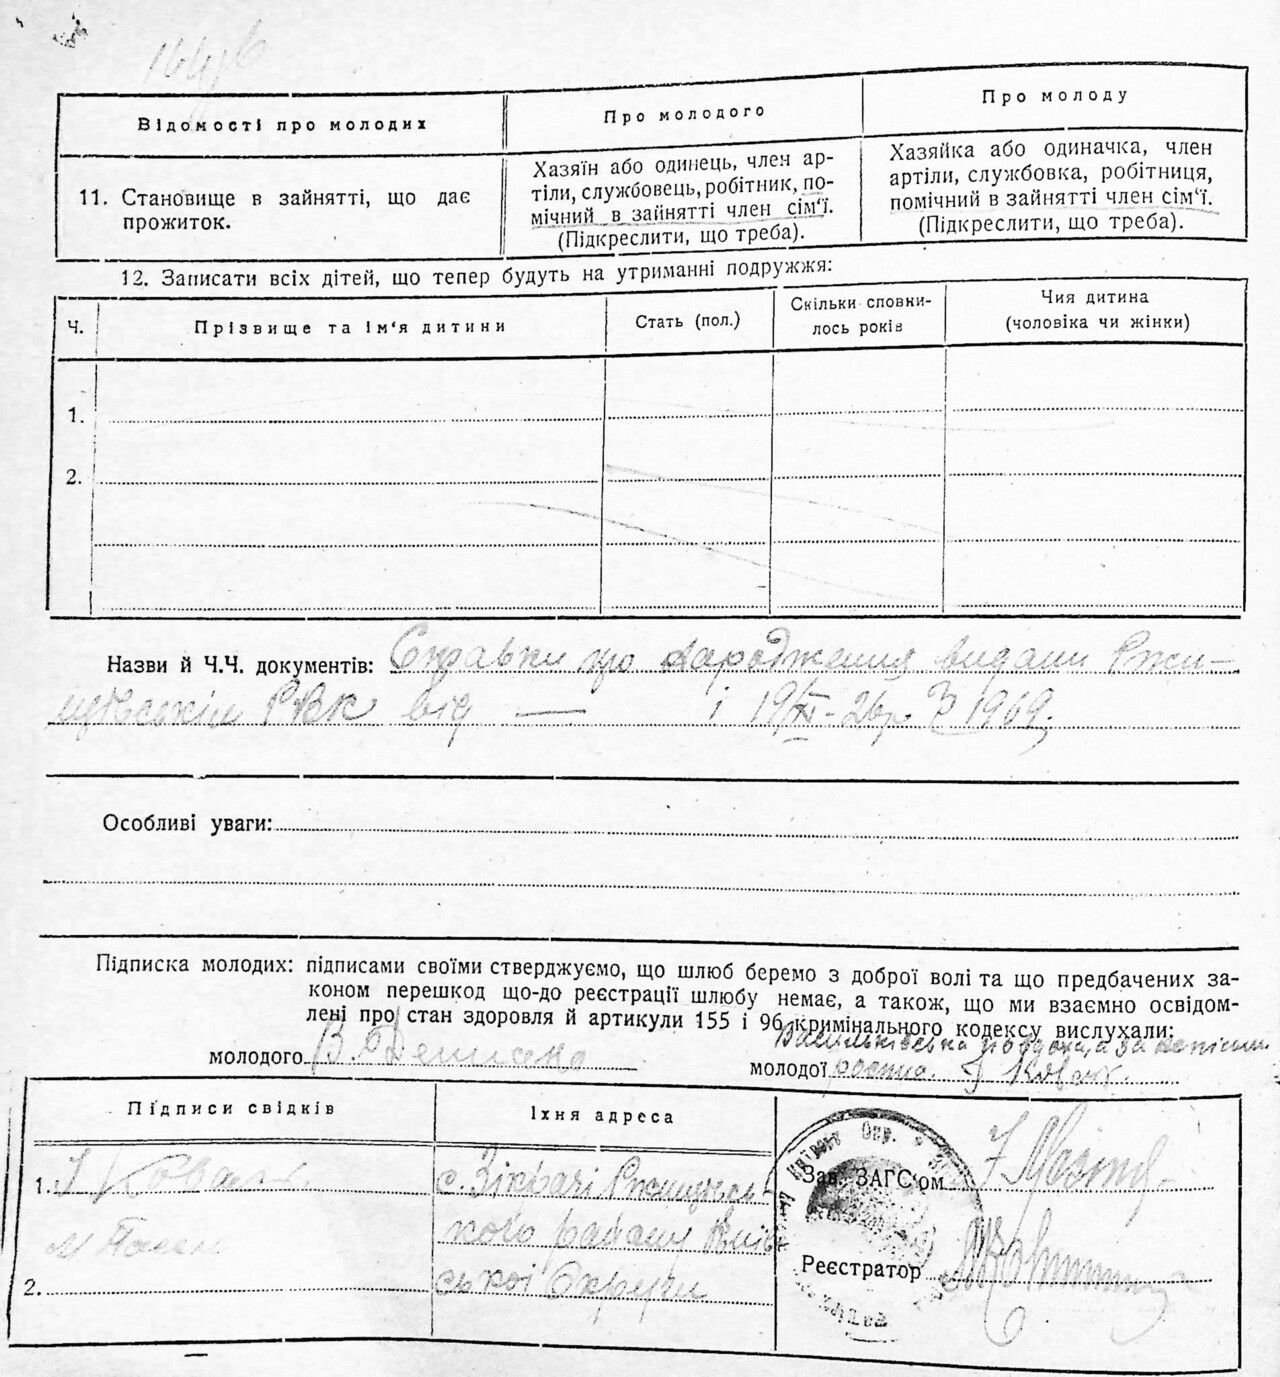 Відомості про молодих
Про молодого
Про молоду
11. Становище в зайнятті, що дає
прожиток.
Хазяїн або одинець, член ар-
тіли, службовець, робітник, по-
мічний в зайнятті член сім'ї.
(Підкреслити, що треба).
Хазяйка або одиначка, член
артіли, службовка, робітниця,
помічний в зайнятті член сім'ї.
(Підкреслити, що треба).
12. Записати всіх дітей, що тепер будуть на утриманні подружжя:
Ч.
Прізвище та ім'я дитини
Стать (пол.)
Скільки сповни-
лось років
Чия дитина
(чоловіка чи жінки)
1.
2.
Назви й Ч.Ч. документів: Справки про народження видани Ржи-
щівським РВК від — і 19/XI-26р З 1969.
Особливі уваги:
Підписка молодих: підписами своїми стверджуємо, що шлюб беремо з доброї волі та що предбачених за-
коном перешкод що-до реєстрації шлюбу немає, а також, що ми взаємно освідом-
лені про стан здоровля й артикули 155 і 96 кримінального кодексу вислухали:
молодого
молодої
Підписи свідків
Їхня адреса
1. І Коваль
2.
с. Зікрачі Ржищівсь-
кого району Київ
ської Округи
Зав. ЗАГС'ом
Реєстратор